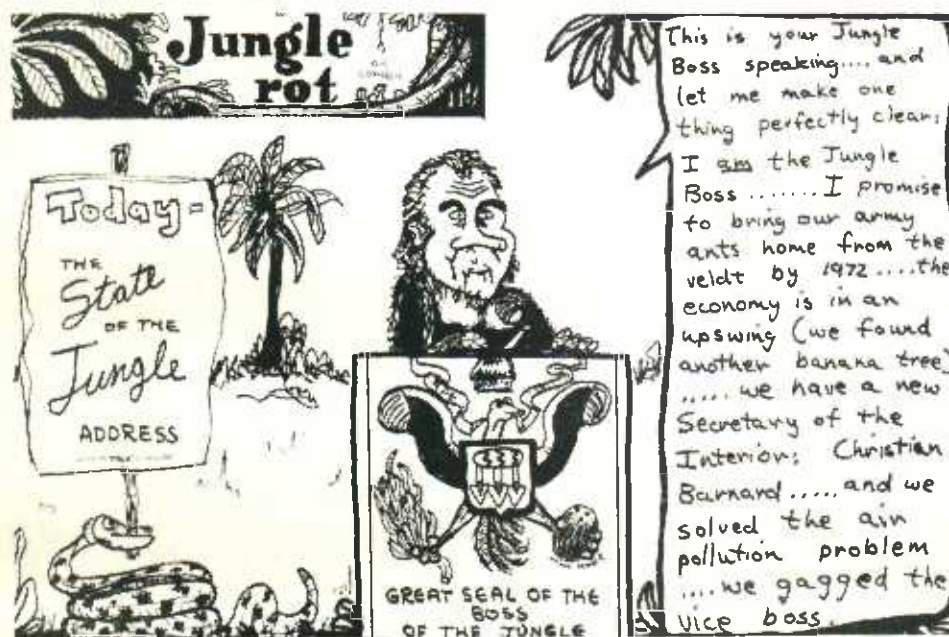 Jungle
rot
Today-
THE
State
OF THE
Jungle
ADDRESS
GREAT SEAL OF THE
BOSS
OF THE JUNGLE
This is your Jungle
Boss speaking.... and
let me make one
thing perfectly clear:
I am the Jungle
Boss ....... I promise
to bring our army
ants home from the
veldt by 1972 ....the
economy is in an
upswing (we found
another banana tree)
..... we have a new
Secretary of the
Interior: Christian
Barnard ..... and we
solved the air
pollution problem
.... we gagged the
vice boss.